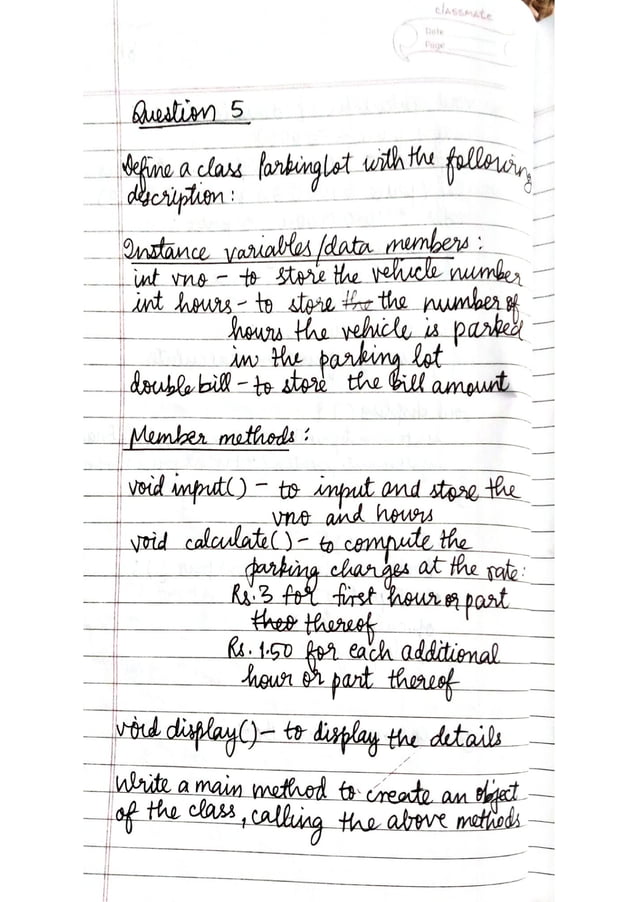 classmate
Date
Page
Question 5
Define a class ParkingLot with the following
description:
Instance variables/data members:
int vno - to store the vehicle number
int hours - to store the the number of
hours the vehicle is parked
in the parking lot
double bill - to store the bill amount
Member methods:
void input() - to input and store the
vno and hours
void calculate() - to compute the
parking charges at the rate:
Rs.3 for first hour or part
theo thereof
Rs. 1.50 for each additional
hour or part thereof
void display() - to display the details
Write a main method to create an object
of the class, calling the above methods